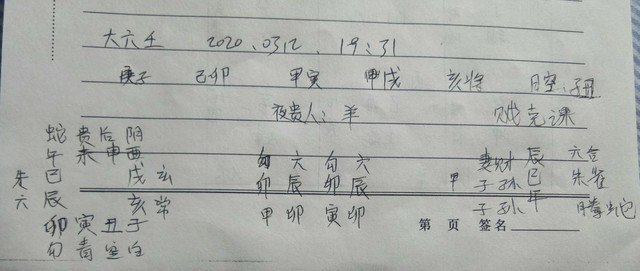 大六壬 2020.0312. 19:31
庚子 己卯 甲寅 甲戌 亥将 日空:子丑
夜贵人:羊 贼克课
蛇 贵 后 阴
午 未 申 酉 勾 六 勾 六 妻财 辰 六合
朱 巳 戌 玄 卯 辰 卯 辰 甲 子孙 巳 朱雀
六 辰 亥 常 甲 卯 寅 卯 子孙 午 腾蛇
卯 寅 丑 子 第 页 签名
勾 青 空 白